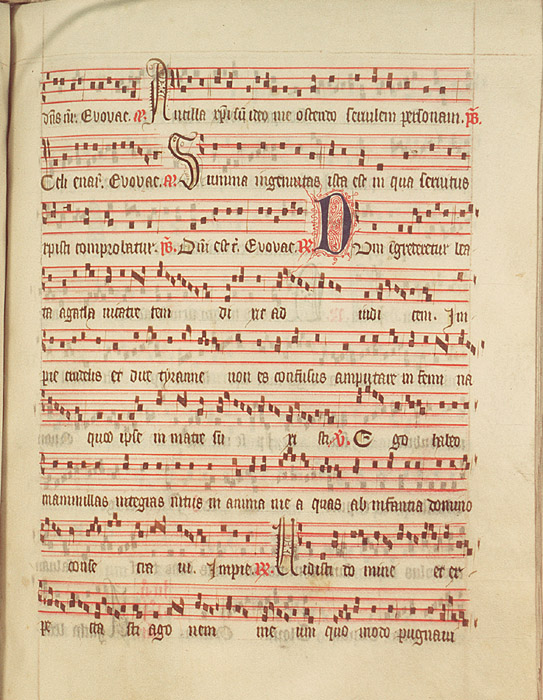 dñs ñr. Evovae. añ. Ancilla xp̄i sū ideo me ostendo servilem personam. ps̄.
Celi enar̄. Evovae. añ Summa ingenuitas ista est in qua servitus
xpisti comprobatur. ps̄. Dn̄i est t̄. Evovae. R̄ Dum īgrederetur bea
ta agatha in catre rem di xit ad iudi cem. Im
pie crudelis et dire tyranne non es confusus amputare in femi na
quod ipse in matre su xi sti. V̄. E go habeo
mammillas integras intus in anima me a quas ab infantia domino
conse cra vi. Impie. R̄ Vidisti do mine et ex
pe cta sti ago nem me um quo modo pugnavi